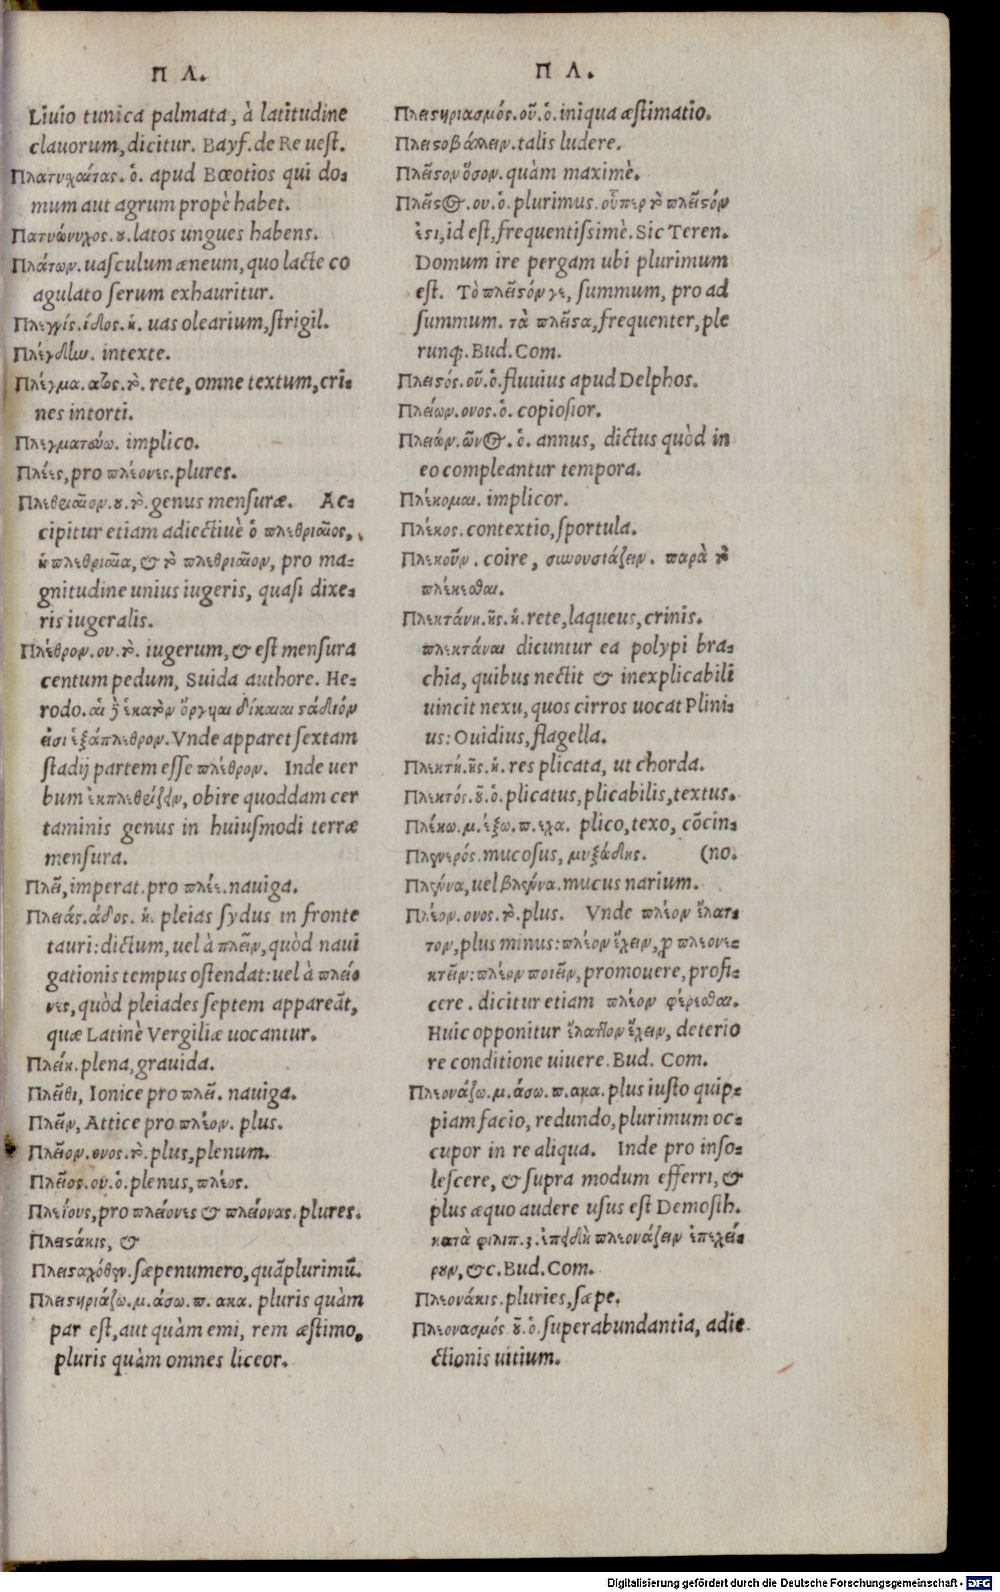 Π Λ.
Liuio tunica palmata, à latitudine
clauorum, dicitur. Bayf. de Re uest.
Πλατυχαίτας. ὁ. apud Bœotios qui do-
mum aut agrum propè habet.
Πατυώνυχος. ου. latos ungues habens.
Πλάτων. uasculum æneum, quo lacte co
agulato serum exhauritur.
Πλεγγίς. ίδος. ἡ. uas olearium, strigil.
Πλέγδην. intexte.
Πλέγμα. ατος. τὸ. rete, omne textum, cri-
nes intorti.
Πλεγματεύω. implico.
Πλέες, pro πλέονες. plures.
Πλεθριαῖον. ου. τὸ. genus mensuræ. Ac-
cipitur etiam adiectiuè ὁ πλεθριαῖος,
ἡ πλεθριαῖα, & τὸ πλεθριαῖον, pro ma-
gnitudine unius iugeris, quasi dixe-
ris iugeralis.
Πλέθρον. ου. τὸ. iugerum, & est mensura
centum pedum, Suida authore. He-
rodo. αἱ δὲ ἑκατὸν ὄργυαι δίκαιαι στάδιόν
εἰσι ἑξάπλεθρον. Vnde apparet sextam
stadij partem esse πλέθρον. Inde uer
bum ἐκπλεθρίζειν, obire quoddam cer
taminis genus in huiusmodi terræ
mensura.
Πλεῖ, imperat. pro πλέε. nauiga.
Πλειάς. άδος. ἡ. pleias sydus in fronte
tauri: dictum, uel à πλεῖν, quòd naui
gationis tempus ostendat: uel à πλείο
νες, quòd pleiades septem appareãt,
quæ Latinè Vergiliæ uocantur.
Πλείη. plena, grauida.
Πλεῖθι, Ionice pro πλεῖ. nauiga.
Πλεῖν, Attice pro πλέον. plus.
Πλεῖον. ονος. τὸ. plus, plenum.
Πλεῖος. ου. ὁ. plenus, πλέος.
Πλείους, pro πλείονες & πλείονας. plures.
Πλειστάκις, &
Πλεισταχόθεν. sæpenumero, quãplurimũ.
Πλειστηριάζω. μ. άσω. π. ακα. pluris quàm
par est, aut quàm emi, rem æstimo,
pluris quàm omnes liceor.
Π Λ.
Πλειστηριασμός. οῦ. ὁ. iniqua æstimatio.
Πλειστοβάλλειν. talis ludere.
Πλεῖστον ὅσον. quàm maximè.
Πλεῖστος. ου. ὁ. plurimus. οὗπερ τὸ πλεῖστόν
ἐστι, id est, frequentissimè. Sic Teren.
Domum ire pergam ubi plurimum
est. Τὸ πλεῖστόν γε, summum, pro ad
summum. τὰ πλεῖστα, frequenter, ple
runq;. Bud. Com.
Πλειστός. οῦ. ὁ. fluuius apud Delphos.
Πλείων. ονος. ὁ. copiosior.
Πλειών. ῶνος. ὁ. annus, dictus quòd in
eo compleantur tempora.
Πλέκομαι. implicor.
Πλέκος. contextio, sportula.
Πλεκοῦν. coire, συνουσιάζειν. παρὰ τὸ
πλέκεσθαι.
Πλεκτάνη. ῆς. ἡ. rete, laqueus, crinis.
πλεκτάναι dicuntur ea polypi bra-
chia, quibus nectit & inexplicabili
uincit nexu, quos cirros uocat Plini-
us: Ouidius, flagella.
Πλεκτή. ῆς. ἡ. res plicata, ut chorda.
Πλεκτός. οῦ. ὁ. plicatus, plicabilis, textus.
Πλέκω. μ. έξω. π. εχα. plico, texo, cõcin-
Πλεννερός. mucosus, μυξώδης. (no.
Πλέννα, uel βλέννα. mucus narium.
Πλέον. ονος. τὸ. plus. Vnde πλέον ἔλατ-
τον, plus minus: πλέον ἔχειν, ꝓ πλεονε-
κτεῖν: πλέον ποιεῖν, promouere, profi-
cere. dicitur etiam πλέον φέρεσθαι.
Huic opponitur ἔλαττον ἔχειν, deterio
re conditione uiuere. Bud. Com.
Πλεονάζω. μ. άσω. π. ακα. plus iusto quip-
piam facio, redundo, plurimum oc-
cupor in re aliqua. Inde pro inso-
lescere, & supra modum efferri, &
plus æquo audere usus est Demosth.
κατὰ φιλιπ. 3. ἐπειδὴ πλεονάζειν ἐπεχεί-
ρουν, &c. Bud. Com.
Πλεονάκις. pluries, sæpe.
Πλεονασμός οῦ. ὁ. superabundantia, adie
ctionis uitium.
Digitalisierung gefördert durch die Deutsche Forschungsgemeinschaft - DFG